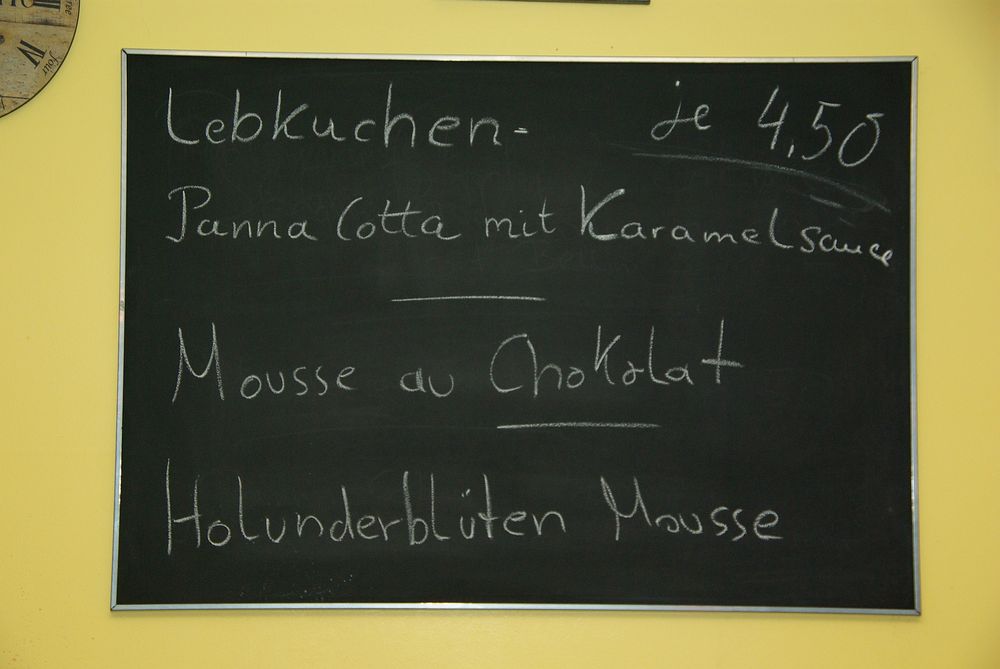 Lebkuchen- je 4,50
Panna Cotta mit Karamelsauce
Mousse au Chokolat
Holunderblüten Mousse
IV